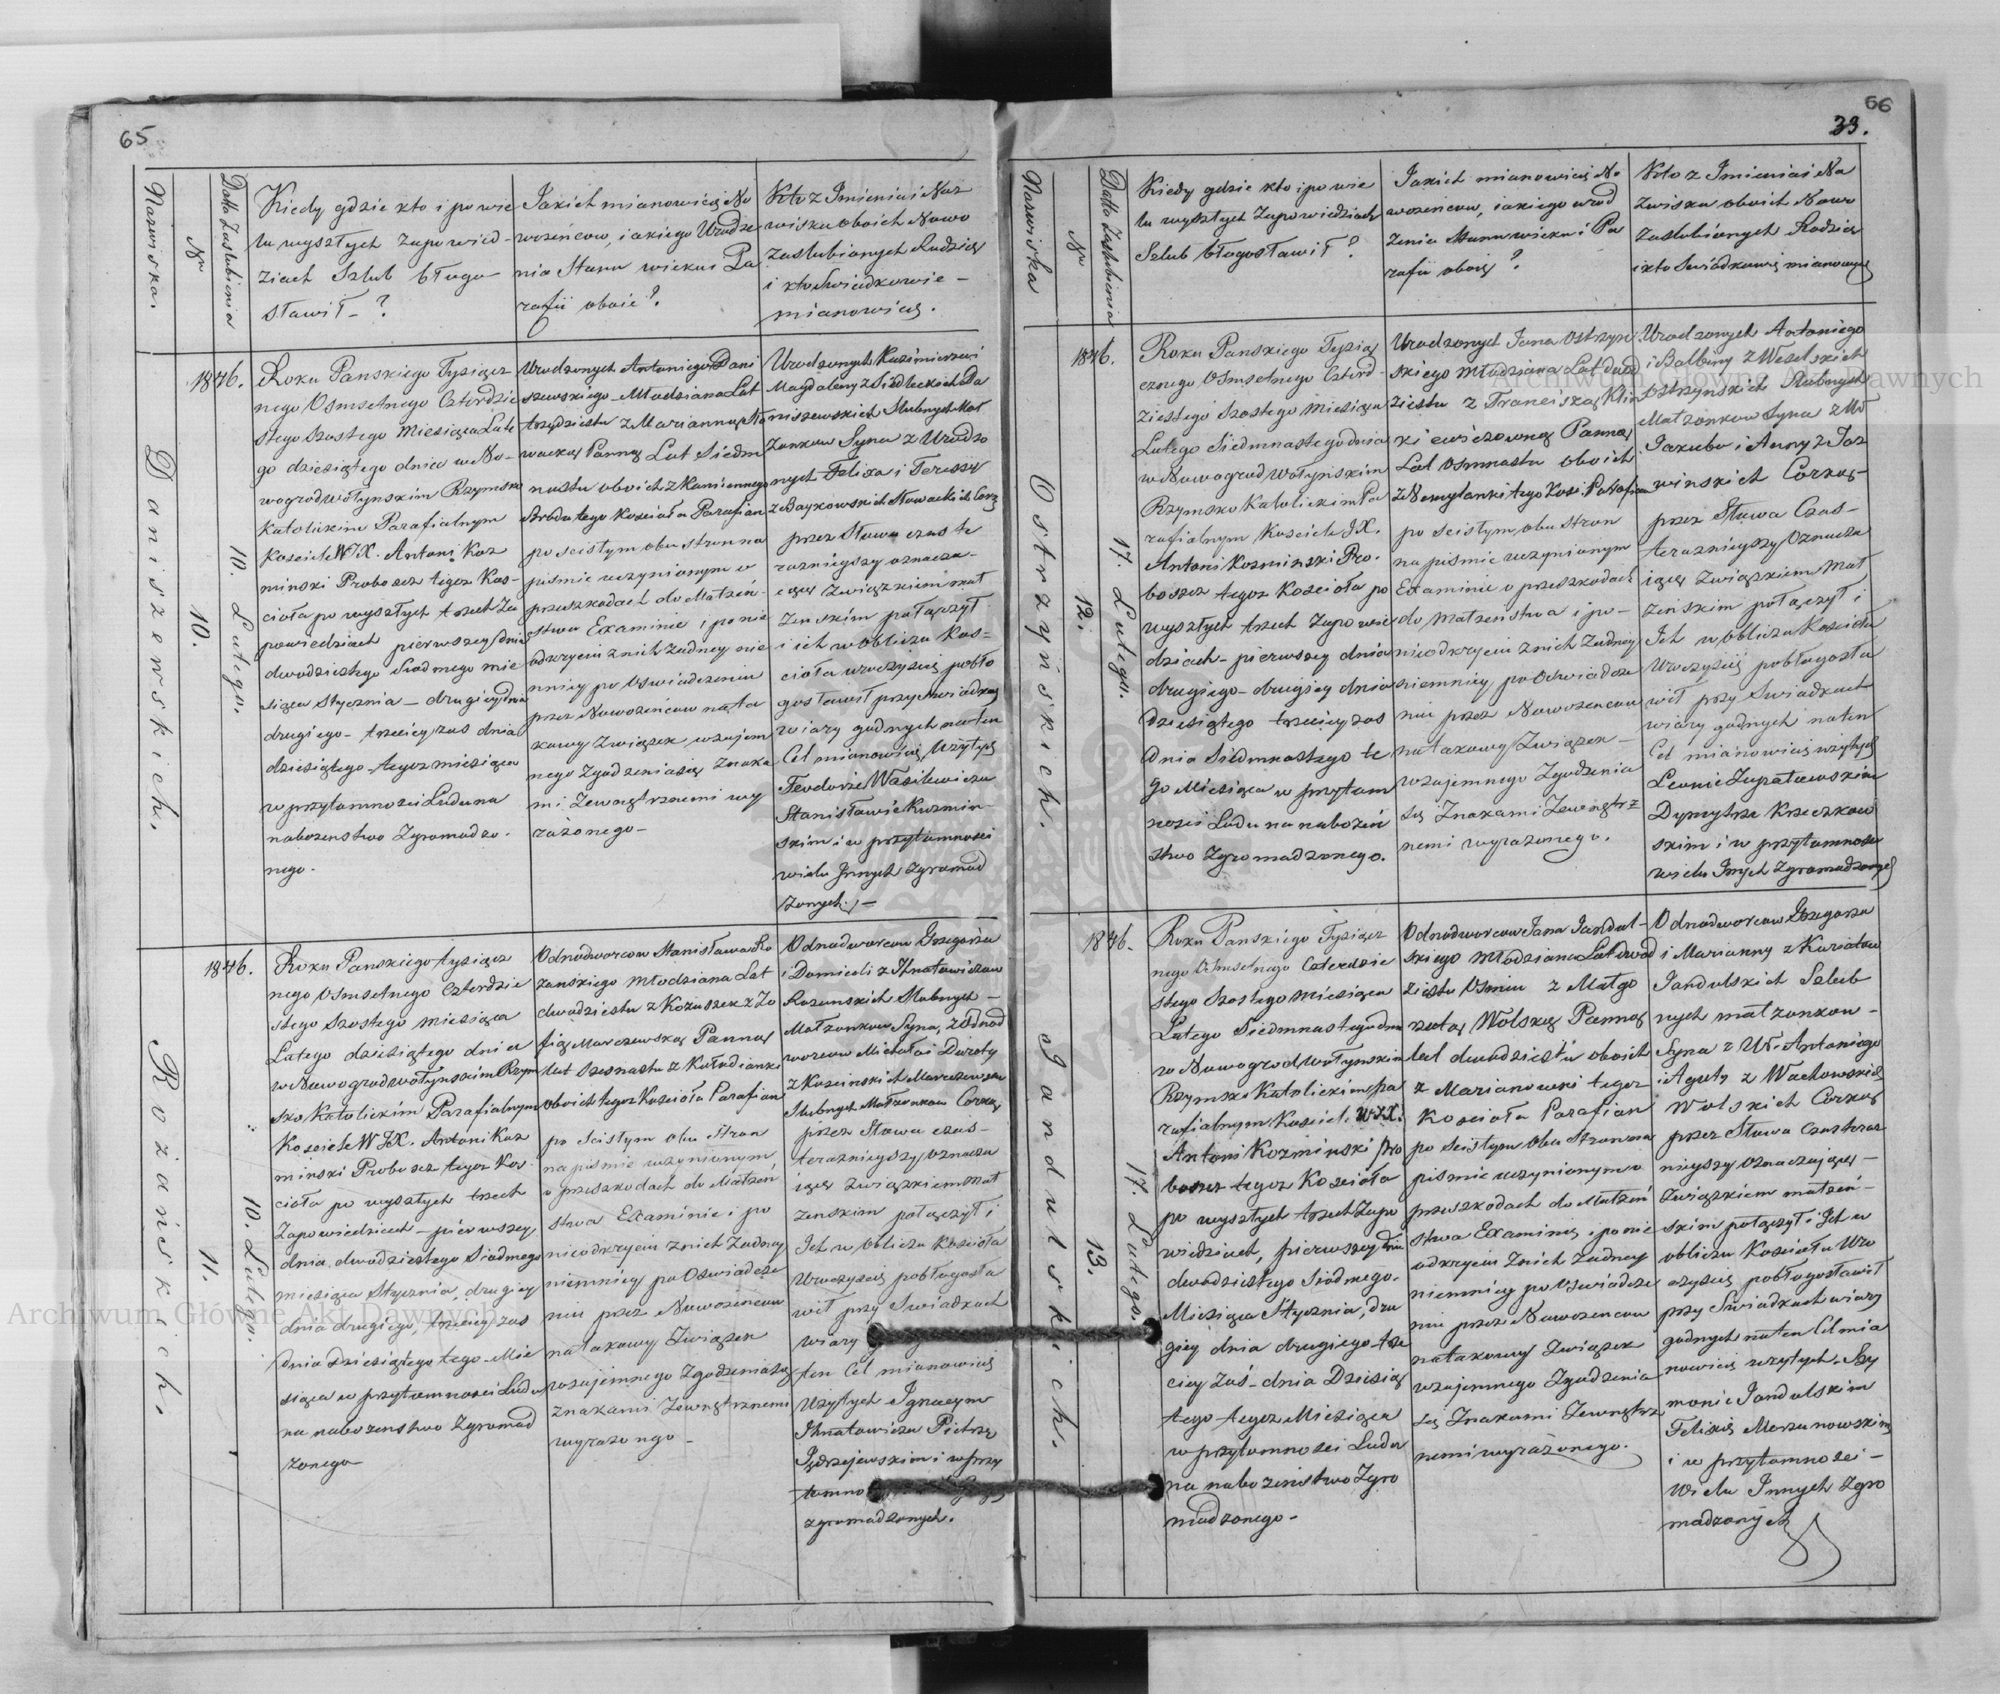 65
Nazwiska.
Nr
Datto Zaslubienia
Kiedy gdzie kto i po wie
lu wyszłych zapowied-
ziach Szlub błogo-
sławił - ?
Jakich mianowicią No
wożeńców, iakiego Urodze
nia Stanu wieku i Pa
rafii oboie?
Kto z Imienia i Naz
wiska oboich Nowo
zaslubionych Rodzicą
i kto Swiadkowie -
mianowicią.
Daniszewskich.
10.
10. Lutego.
1846.
Roku Panskiego Tysiącz
nego Osmsetnego Czterdzie
stego Szostego Miesiąca Lute
go dziesiątego dnia w No-
wogrodwołynskim Rzymsko
Katolickim Parafialnym
Kosciele W JX. Antoni Koz
minski Proboszcz tegoz Kos-
cioła po wyszłych trzech Za
powiedziach pierwszey dnia
dwudziestego Siodmego mie
siąca Stycznia - drugiey dnia
drugiego - trzeciey zas dnia
dziesiątego tegoz miesiąca
w przytomnosci Ludu na
nabozenstwo Zgromadzo-
nego.
Urodzonych Antoniego Dani
szewskiego Młodziana Lat
trzydziestu z Marianną Sło
wacką Panną Lat Siedm
nastu oboich z Kamiennego
Brodu tego Kosciola Parafian
po scisłym obu stron na
pismie uczynionym o
przeszkodach do Małzeń-
stwa Examinie, i po nie
odkryciu z nich zadney nie
mniey po Oswiadczeniu
przez Nowozencow na ta
kowy Związek wzajem
nego Zgodzenia się Znaka
mi Zewnątrznemi wy
rażonego -
Urodzonych Kazimierza i
Magdaleny z Siedleckich Da
niszewskich Slubnych Mał
zonkow Syna z Urodzo
nych Felixa i Teressy
z Baykowskich Słowackich Corz
przez Słowa czas te
razniejszy oznacza-
iące Związkiem mał
zenskim połączył
i ich w obliczu Kos-
cioła uroczyscie pobło
gosławił przy Swiadkach
wiary godnych na ten
Cel mianowicią użytych
Teodorze Wasilewiczu
Stanisławie Kuzmin-
skim i w przytomnosci
wielu Innych zgromad
zonych. -
Rozańskich.
11.
10. Lutego.
1846.
Roku Panskiego tysiącz
nego Osmsetnego Czterdzie
stego Szostego miesiąca
Lutego dziesiątego dnia
w Nowogrodwołynskim Rzym
sko Katolickim Parafialnym
Kosciele W JX. Antoni Koz
minski Proboszcz tegoz Kos-
cioła po wyszłych trzech
Zapowiedziach - pierwszey
dnia dwudziestego Siodmego
miesiąca Stycznia, drugiey
dnia drugiego, trzeciey zas
dnia dziesiątego tego Mie
siąca w przytomnosci Ludu
na nabozenstwo Zgromad
zonego
Odnodworcow Stanisława Ro
zanskiego Młodziana Lat
dwudziestu z Kozuszek z Zo
fią Marczewską Panną
lat Szesnastu z Kołodianki
oboich tegoz Kosciola Parafian
po Scisłym obu Stron
na pismie uczynionym
o przeszkodach do Małżeń
stwa Examinie i po
nieodkryciu z nich Zadney
niemniey po Oswiadcze
niu przez Nowozencow
natakowy Związek
wzajemnego Zgodzenia się
Znakami Zewnątrznemi
wyrazonego -
Odnodworcow Grzegorza
i Domiceli z Ihnatowiczow
Rozanskich Slubnych -
Małzonkow Syna, z Odnod
worcow Michała i Doroty
z Koscinskich Marczewskich
Slubnych Małzonkow Corką
przez Słowa czas-
teraznieyszy oznacza
iące Związkiem mał
zenskim połączył i
Ich w obliczu Kosciola
Uroczyscie pobłogosła
wił przy Swiadkach
wiary
ten Cel mianowicią
Użytych Ignacym
Ihnatowiczu Piotrze
Jędrzejewskim i w przy
tomno
zgromadzonych.
66
33.
Nazwiska
Nr
Datto Zaslubienia
Kiedy gdzie kto i po wie
lu wyszłych Zapowiedziach
Szlub błogosławił ?
Jakich mianowicią No
wożeńcow, iakiego urod
zenia Stanu wieku i Pa
rafii oboię ?
Kto z Imienia i Na
zwiska oboich Nowo
zaslubionych Rodzicą
i kto Swiadkowie mianowicią
Ostrzyńskich.
12.
17. Lutego.
1846.
Roku Panskiego Tysiąc
cznego Osmsetnego Czterd-
ziestego Szostego Miesiąca
Lutego Siedmnastego dnia
w Nowogrod wołyńskim
Rzymsko Katolickim Pa
rafialnym Kosciele JX.
Antoni Kozminski Pro-
boszcz tegoz Kosciola po
wyszłych trzech Zapowie
dziach - pierwszey dnia
drugiego - drugiey dnia
dziesiątego trzeciey zas
dnia Siedmnastego te
go Miesiąca w przytom
nosci Ludu na nabożeń
stwo Zgromadzonego.
Urodzonych Jana Ostrzyn
skiego Młodziana Lat dwud
ziestu z Franciszką Klim
kiewiczowną Panną
Lat Osmnastu oboich
z Nemylanki tego Kosc: Parafian
po scisłym obu stron
na pismie uczynionym
Examinie o przeszkodach
do Małzenstwa i po-
nieodkryciu z nich Zadney
niemniey po Oswiadcze
niu przez Nowozencow
natakowy Związek -
wzajemnego Zgodzenia
się Znakami Zewnątrz
nemi wyrazonego.
Urodzonych Antoniego
i Balbiny z Weselskich
Ostrzynskich Slubnych
Małzonkow Syna z
Jakuba i Anny z
winskich Corką-
przez Słowa Czas-
teraznieyszy Oznacza
iącą Związkiem Mał
żeńskim połączył i
Ich w obliczu Kosciola
Uroczyscie pobłogosła
wił przy Swiadkach
wiary godnych na ten
Cel mianowicią użytych
Leonie Zupałowskim
Dymytrze Kreczkow
skim i w przytomnosci
wielu Innych Zgromadzonych
Jandulskich.
13.
17. Lutego.
1846.
Roku Panskiego Tysiącz
nego Osmsetnego Czterdzie
stego Szostego Miesiąca
Lutego Siedmnastego dnia
w Nowogrodwołynskim
Rzymsko Katolickim Pa
rafialnym Kosciele W JX.
Antoni Kozminski Pro
boszcz tegoz Kosciola
po wyszłych trzech Zapo
wiedziach, pierwszey dnia
dwudziestego Siodmego.
Miesiąca Stycznia, dru
giey dnia drugiego trze
ciey Zaś - dnia Dziesią
tego tegoz Miesiąca
w przytomnosci Ludu
na nabozenstwo Zgro
madzonego -
Odnodworcow Jana Jandul-
skiego Młodziana Lat dwud
ziestu Osmiu z Małgo
rzatą Wolską Panną
lat dwudziestu oboich
z Marianowki tegoz
Kosciola Parafian
po Scisłym Obu Stron na
pismie uczynionym o
przeszkodach do Małzeń
stwa Examinie, i po nie
odkryciu Znich Zadney
niemniey po Oswiadcze
niu przez Nowozencow
natakowy Związek
wzajemnego Zgodzenia
się Znakami Zewnątrz
nemi wyrażonego.
Odnodworcow Grzegorza
i Marianny z Kuriatow
Jandulskich Szlub
nych małzonkow -
Syna z Ur: Antoniego
i Agaty z Wachowskich
Wolskich Corką
przez Słowa Czas teraz
nieyszy oznaczającą -
Związkiem małzeń-
skim połączył i Ich w
obliczu Kosciola Uro
czyscie pobłogosławił
przy Swiadkach wiary
godnych na ten Cel mia
nowicią użytych. Szy
monie Jandulskim
Felixie Merzanowskim
i w przytomnosci -
Wielu Innych Zgro
madzonych
Archiwum Główne Akt Dawnych
Archiwum Główne Akt Dawnych